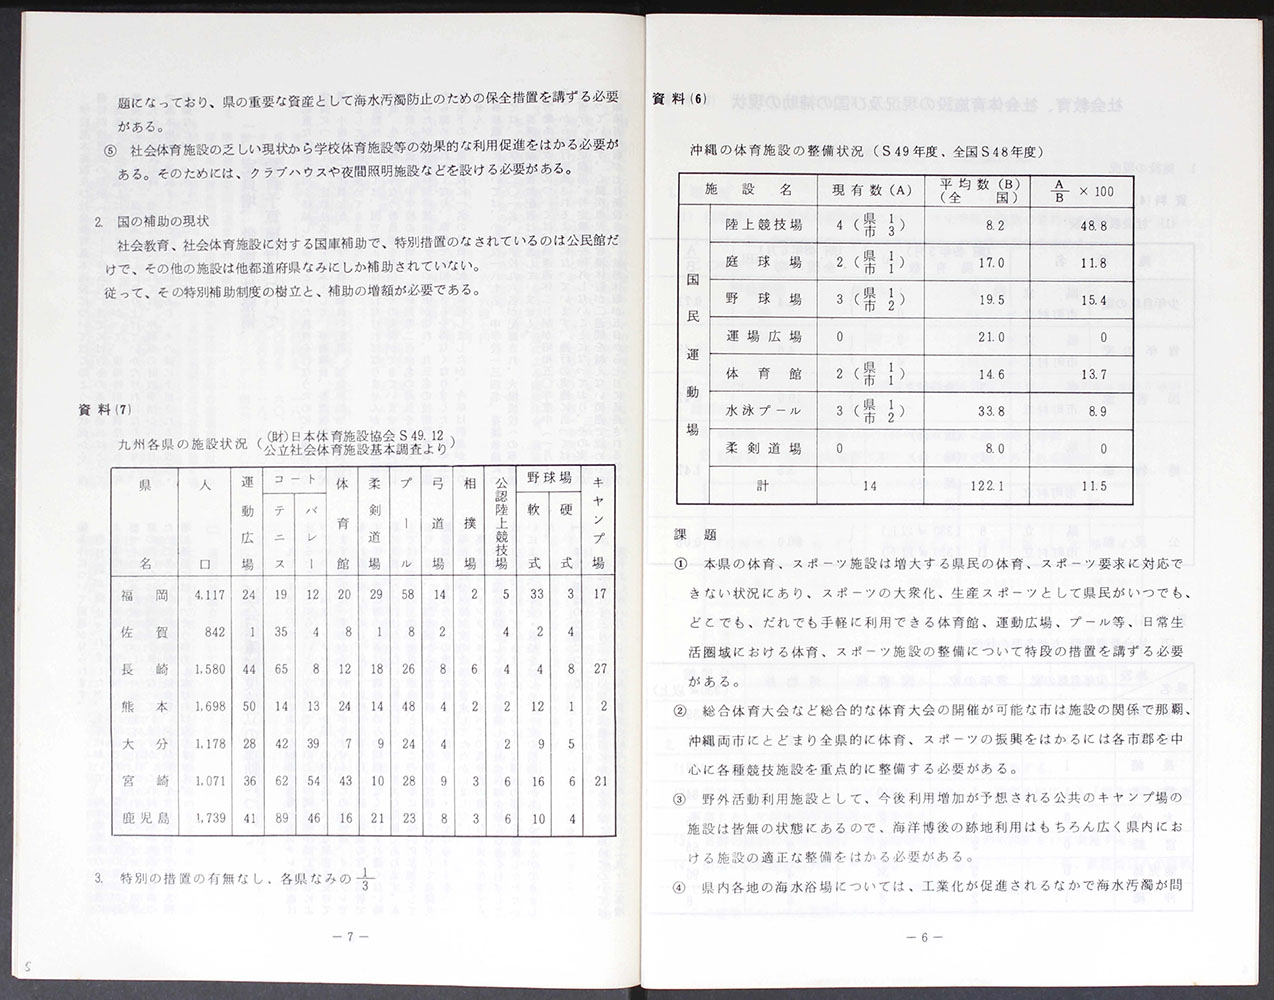 資料(6)
沖縄の体育施設の整備状況(S49年度、全国S48年度)
施設名 現有数(A) 平均数(B)(全国) A/B×100
国民運動場
陸上競技場 4(県1 市3) 8.2 48.8
庭球場 2(県1 市1) 17.0 11.8
野球場 3(県1 市2) 19.5 15.4
運場広場 0 21.0 0
体育館 2(県1 市1) 14.6 13.7
水泳プール 3(県1 市2) 33.8 8.9
柔剣道場 0 8.0 0
計 14 122.1 11.5
課題
① 本県の体育、スポーツ施設は増大する県民の体育、スポーツ要求に対応で
きない状況にあり、スポーツの大衆化、生産スポーツとして県民がいつでも、
どこでも、だれでも手軽に利用できる体育館、運動広場、プール等、日常生
活圏域における体育、スポーツ施設の整備について特段の措置を講ずる必要
がある。
② 総合体育大会など総合的な体育大会の開催が可能な市は施設の関係で那覇、
沖縄両市にとどまり全県的に体育、スポーツの振興をはかるには各市郡を中
心に各種競技施設を重点的に整備する必要がある。
③ 野外活動利用施設として、今後利用増加が予想される公共のキャンプ場の
施設は皆無の状態にあるので、海洋博後の跡地利用はもちろん広く県内にお
ける施設の適正な整備をはかる必要がある。
④ 県内各地の海水浴場については、工業化が促進されるなかで海水汚濁が問
－6－
題になっており、県の重要な資産として海水汚濁防止のための保全措置を講ずる必要
がある。
⑤ 社会体育施設の乏しい現状から学校体育施設等の効果的な利用促進をはかる必要が
ある。そのためには、クラブハウスや夜間照明施設などを設ける必要がある。
2 国の補助の現状
社会教育、社会体育施設に対する国庫補助で、特別措置のなされているのは公民館だ
けで、その他の施設は他都道府県なみにしか補助されていない。
従って、その特別補助制度の樹立と、補助の増額が必要である。
資料(7)
九州各県の施設状況((財)日本体育施設協会S49.12 公立社会体育施設基本調査より)
県名 人口 運動広場 コート テニス バレー 体育館 柔剣道場 プール 弓道場 相撲場 公認陸上競技場 野球場 軟式 硬式 キャンプ場
福岡 4,117 24 19 12 20 29 58 14 2 5 33 3 17
佐賀 842 1 35 4 8 1 8 2 4 2 4
長崎 1,580 44 65 8 12 18 26 8 6 4 4 8 27
熊本 1,698 50 14 13 24 14 48 4 2 2 12 1 2
大分 1,178 28 42 39 7 9 24 4 2 9 5
宮崎 1,071 36 62 54 43 10 28 9 3 6 16 6 21
鹿児島 1,739 41 89 46 16 21 23 8 3 6 10 4
3. 特別の措置の有無なし、各県なみの1/3
－7－
5